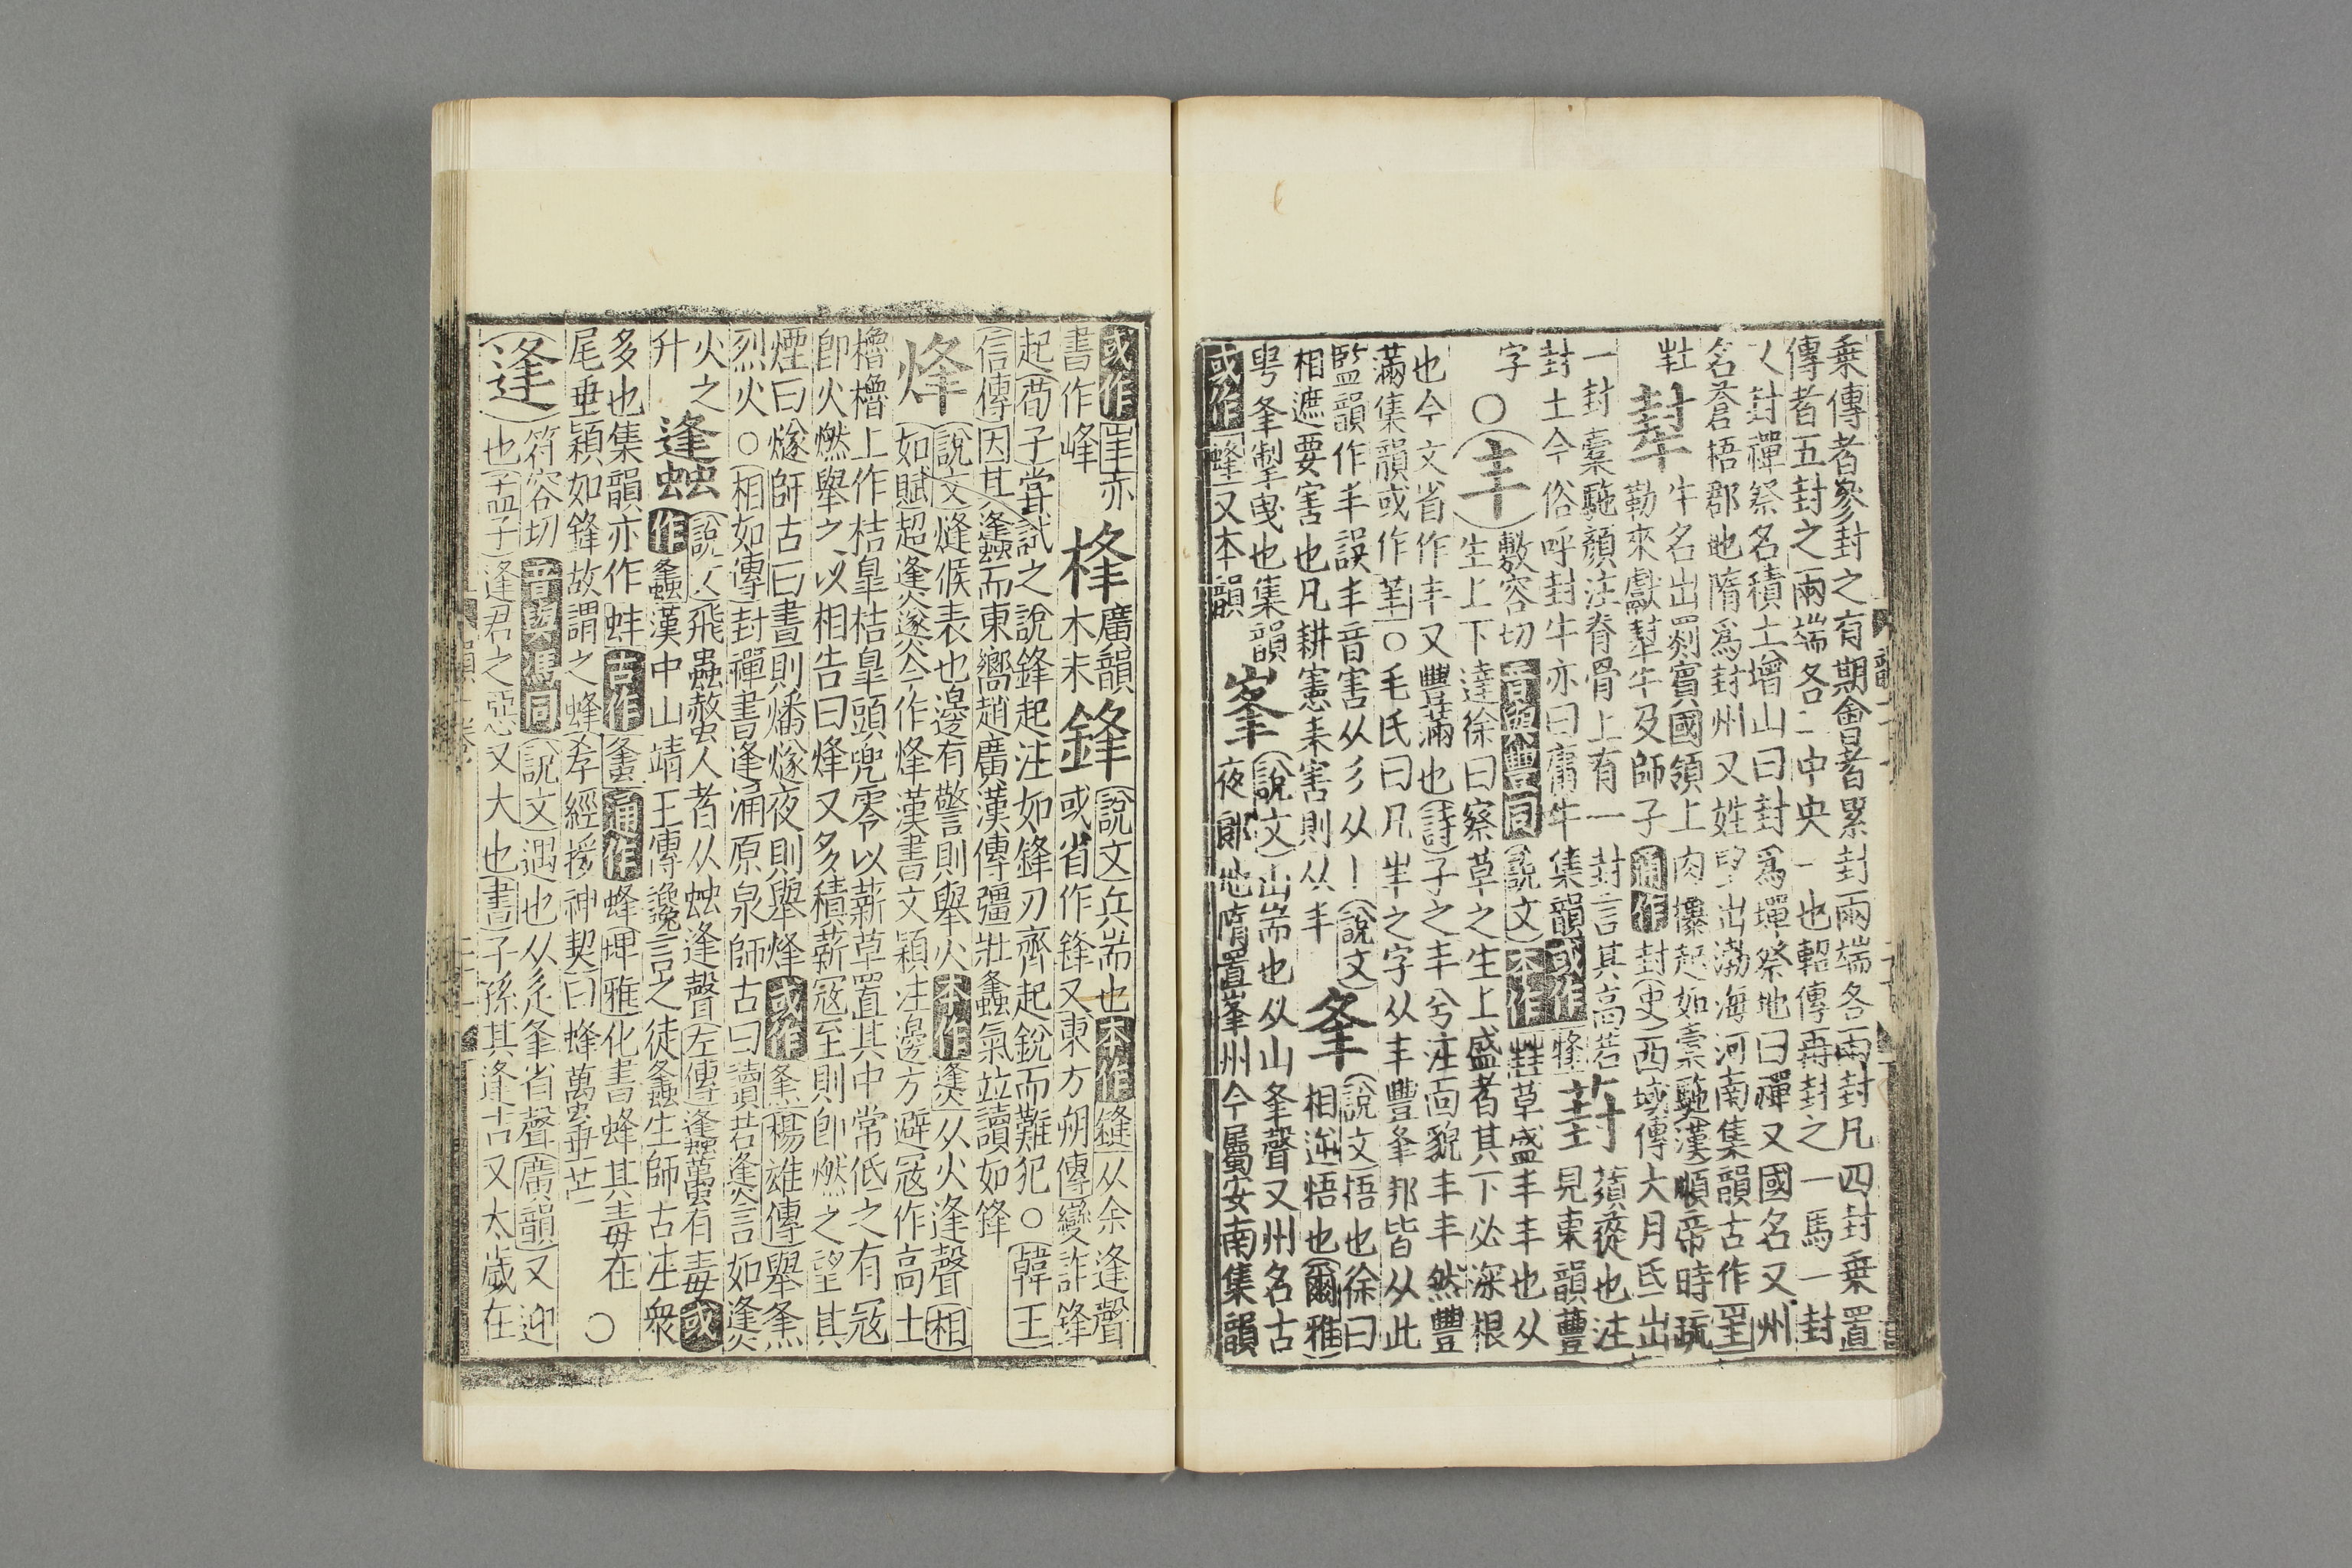 乗傳者參封之有期會者累封兩端各兩封凡四封乗置
傳者五封之兩端各二中央一也軺傳再封之一馬一封
又封禪祭名積土增山曰封爲墠祭地曰禪又國名又州
名蒼梧郡地隋爲封州又姓望出渤海河南集韻古作𡉚
牡
犎
牛名出罽賓國領上肉𢷏起如橐駞漢順帝時疏
勒來獻犎牛及師子通作封史西域傳大月氏出
一封橐駞顏注脊骨上有一封言其高若
封土今俗呼封牛亦曰㹙牛集韻或作㸼
葑
蕦蓯也注
見東韻蘴
字
○
丰
敷容切音與豐同說文本作𡴀草盛丰丰也从
生上下達徐曰察草之生上盛者其下必深根
也今文省作丰又豐滿也詩子之丰兮注面貌丰丰然豐
滿集韻或作䒠○毛氏曰凡半之字从丰豐夆邦皆从此
監韻作丰誤丰音害从彡从丨說文
相遮要害也凡耕憲耒害則从丰
夆
說文啎也徐曰
相逆悟也爾雅
甹夆掣曳也集韻
或作䗬又本韻
峯
說文山耑也从山夆聲又州名古
夜郎地隋置峯州今屬安南集韻
或作崖亦
書作峰
桻
廣韻
木末
鋒
說文兵耑也本作鏠从金逢聲
或省作鋒又東方朔傳變詐鋒
起荀子嘗試之說鋒起注如鋒刃齊起銳而難犯○韓王
信傳因其䗬而東嚮趙廣漢傳彊壯蠭氣竝讀如鋒
烽
說文燧候表也邊有警則舉火本作㷭从火逢聲相
如賦超㷭邃今作烽漢書文穎注邊方避寇作高土
櫓櫓上作桔皐桔皐頭兜零以薪草置其中常低之有寇
卽火燃舉之以相告曰烽又多積薪寇至則卽燃之望其
煙曰燧師古曰晝則燔燧夜則舉烽或作㷨楊雄傳舉㷨
烈火○相如傳封禪書逢涌原泉師古曰讀若㷭言如㷭
火之
升
䗬
說文飛蟲螫人者从䖵逢聲左傳䗬蠆有毒或
作蠭漢中山靖王傳讒言之徒蠭生師古注衆
多也集韻亦作蚌古作𧊧通作蜂埤雅化書蜂其毒在
尾垂穎如鋒故謂之蜂孝經援神契曰蜂蠆垂芒
○
逢
符容切音與馮同說文遇也从辵夆省聲廣韻又迎
也孟子逢君之惡又大也書子孫其逢吉又太歲在